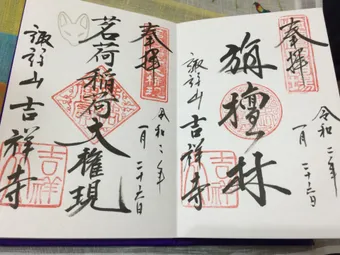 奉拝
旃檀林
諏訪山吉祥寺
令和二年
一月二十六日
吉祥
奉拝
茗荷稲荷大権現
諏訪山吉祥寺
令和二年
一月二十六日
吉祥